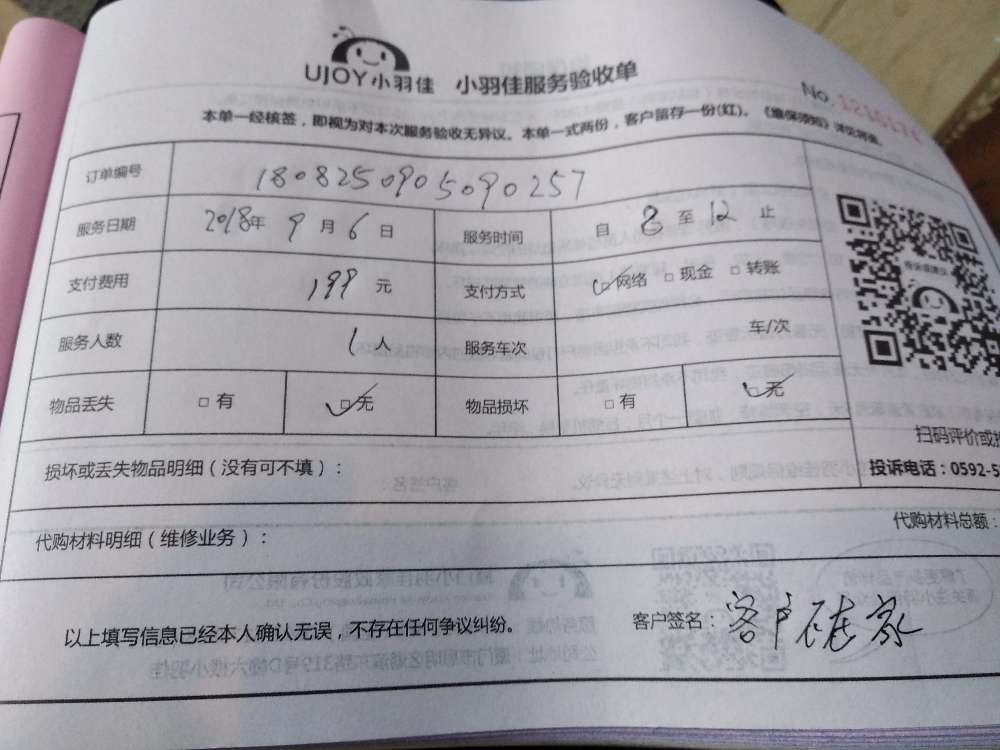 UJOY小羽佳 小羽佳服务验收单
No.
本单一经核签，即视为对本次服务验收无异议。本单一式两份，客户留存一份(红)。《维保须知》详见背面
订单编号 1808250905090257
服务日期 2018年 9 月 6 日 服务时间 自 8 至 12 止
支付费用 199 元 支付方式 □网络 □现金 □转账
服务人数 1人 服务车次 车/次
物品丢失 □有 □无 物品损坏 □有 □无
扫码评价或
损坏或丢失物品明细（没有可不填）：
投诉电话：0592-5
代购材料明细（维修业务）：
代购材料总额：
以上填写信息已经本人确认无误，不存在任何争议纠纷。
客户签名：客户不在家